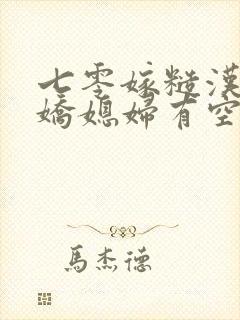 七零嫁糙漢
嬌媳婦有空
馬杰德